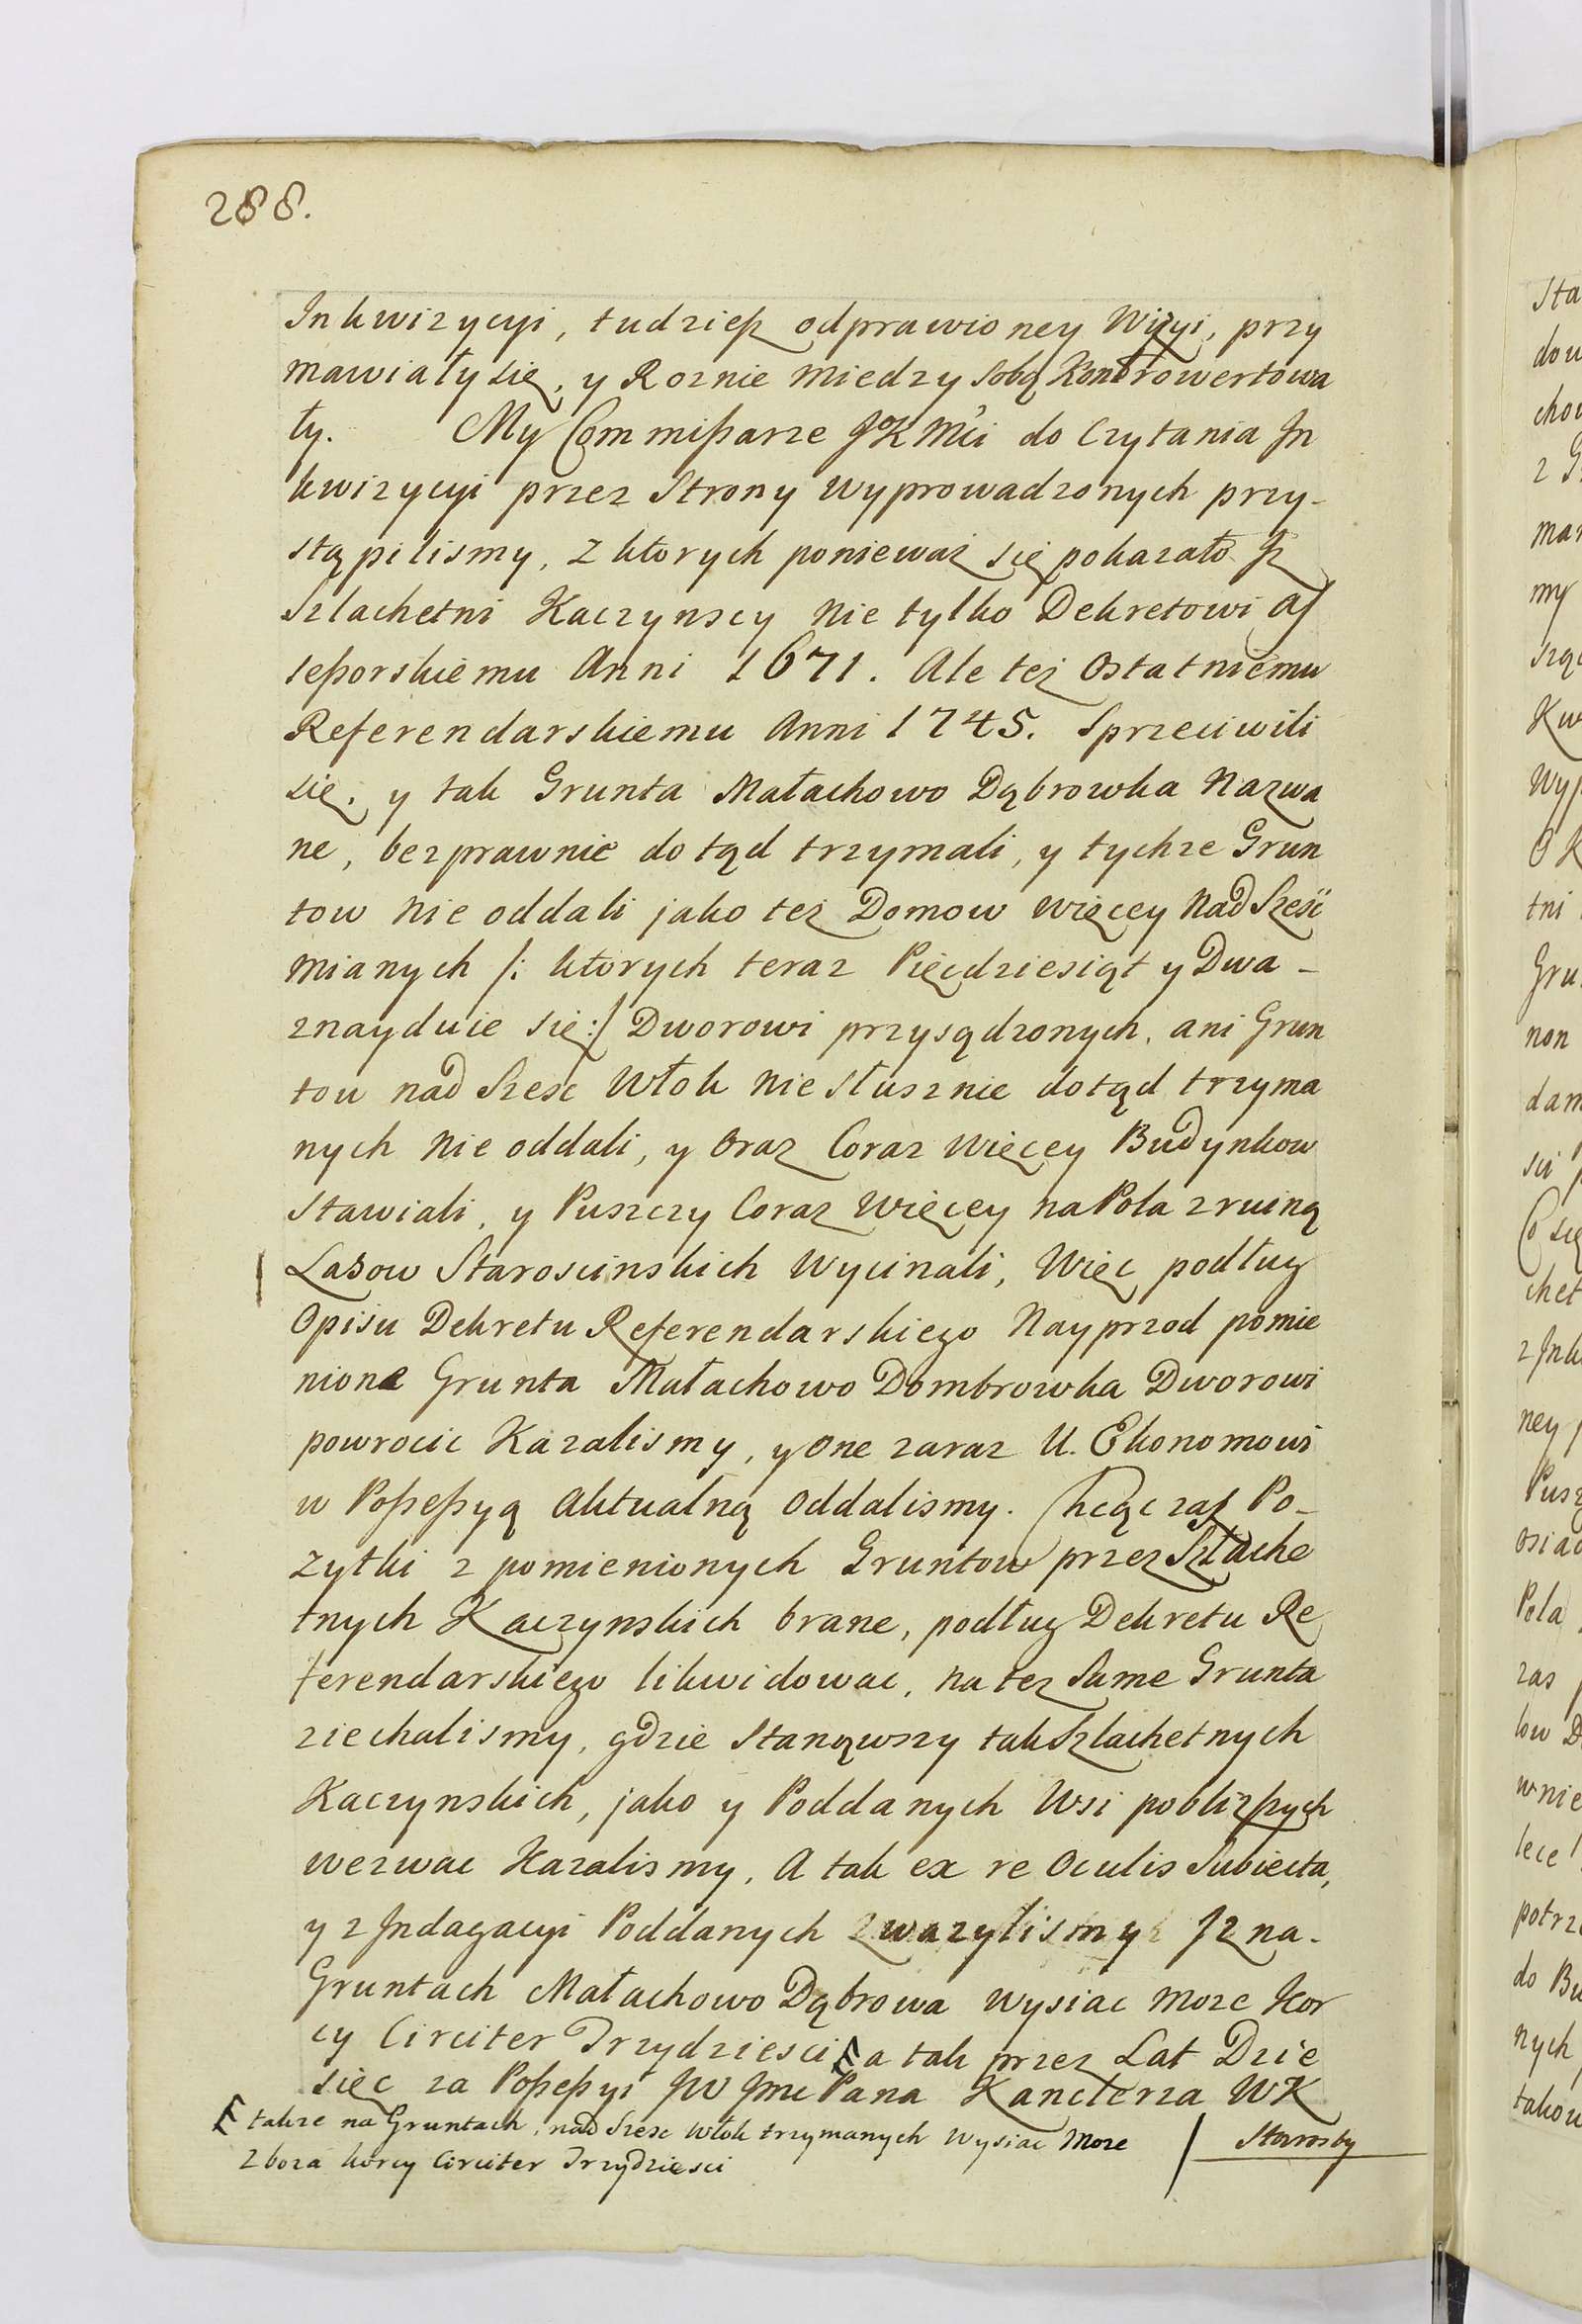 288.
Inkwizycyi, tudziesz odprawioney Wizyi, przy
mawiały się, y Roznie miedzy sobą Kontrowertowa
ły. My Commißarze JKMci do Czytania In
kwizycyi przez Strony wyprowadzonych przy-
stąpilismy, z ktorych ponieważ się pokazało Iz
Szlachetni Kaczynscy nie tylko Dekretowi As
seßorskiemu Anni 1671. Ale też Ostatniemu
Referendarskiemu Anni 1745. Sprzeciwili
się, y tak Grunta Małachowo Dąbrowka Nazwa
ne, bezprawnie dotąd trzymali, y tychze Grun
tow nie oddali jako też Domow więcey nad Sześć
mianych /: ktorych teraz Pięcdziesiąt y Dwa -
znayduie się :/ Dworowi przysądzonych, ani Grun
tow nad Szesc Włok nie słusznie dotąd trzyma
nych nie oddali, y oraz Coraz więcey Budynkow
stawiali, y Puszczy Coraz więcey na Pola z ruiną
Lasow Staroscinskich wycinali, Więc podług
Opisu Dekretu Referendarskiego Nayprzod pomie
nione Grunta Małachowo Dombrowka Dworowi
powrocic Kazalismy, y one zaraz U. Ekonomowi
w Poßeßyą aktualną oddalismy. Chcąc zas Po-
zytki z pomienionych Gruntow przez Szlache
tnych Kaczynskich brane, podług Dekretu Re
ferendarskiego likwidowac, na tez Same Grunta
ziechalismy, gdzie stanąwszy tak Szlachetnych
Kaczynskich, jako y Poddanych Wsi pobliższych
wezwac Kazalismy, A tak ex re Oculis Subiecta,
y z Indagacyi Poddanych zwazylismy Iz na-
Gruntach Małachowo Dąbrowa wysiac moze Kor
cy Circiter Trzydziesci a tak przez Lat Dzie
sięc za Poßeßyi JW Jmc Pana Kanclerza WK
takze na Gruntach, nad Szesc Włok trzymanych wysiac Moze
Zboza korcy Circiter Trzydziesci
Starosty